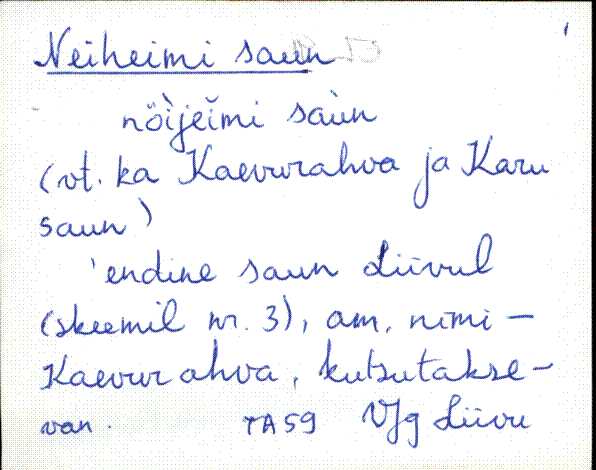 Neiheimi saun
nöìjeĭmi saùn
(vt. ka Kaevurahva ja Karu
saun)
'endine saun Liivul
(skeemil nr. 3), am. nimi -
Kaevurahva, kutsutakse-
van. TA 59 VJg Liivu